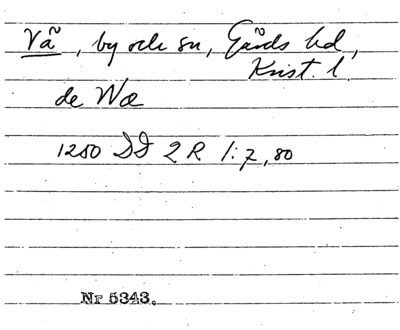 Vã, by och sn, Gãrds hd,
Krist. l.
de Wæ
1250 DD 2 R 1:7, 80
Nr 5343.